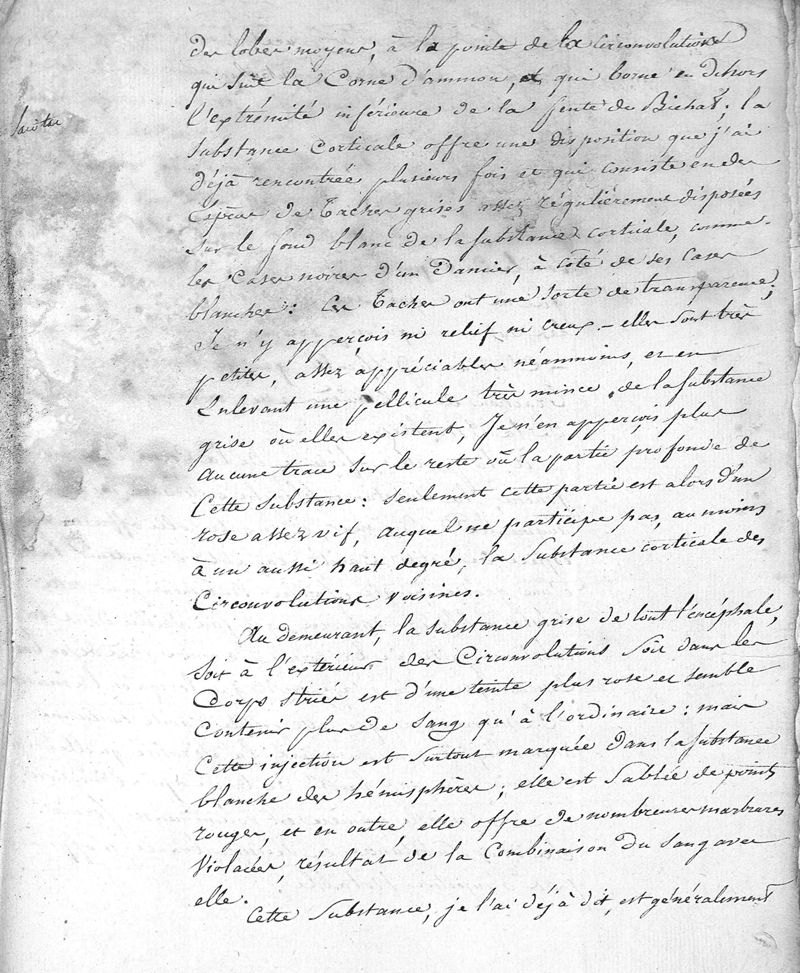 des lobes moyens, à la pointe de la circonvolution
qui suit la Corne d'ammon, et qui borne en dehors
l'extrémité inférieure de la fente de Bichat; la
substance corticale offre une disposition que j'ai
déjà rencontrée plusieurs fois et qui consiste en des
Espèces de Taches grises assez régulièrement disposées
sur le fond blanc de la substance corticale, comme
les Cases noires d'un Damier, à côté de ses Cases
blanches: Ces Taches ont une sorte de transparence;
Je n'y apperçois ni relief ni creux - elles sont très
petites, assez appréciables néanmoins, et en
Enlevant une pellicule très mince de la substance
grise où elles existent, Je n'en apperçois plus
aucune trace sur le reste où la partie profonde de
Cette substance: seulement cette partie est alors d'un
rose assez vif, auquel ne participe pas, au moins
à un aussi haut degré, la substance corticale des
Circonvolutions voisines.
Au demeurant, la substance grise de tout l'encéphale,
soit à l'extérieur des Circonvolutions soit dans les
Corps striés est d'une teinte plus rose et semble
Contenir plus de sang qu'à l'ordinaire: mais
Cette injection est surtout marquée dans la substance
blanche des hémisphères; elle est sablée de points
rouges, et en outre, elle offre de nombreuses marbrures
Violacées, résultat de la Combinaison du sang avec
elle.
Cette Substance, je l'ai déjà dit, est généralement